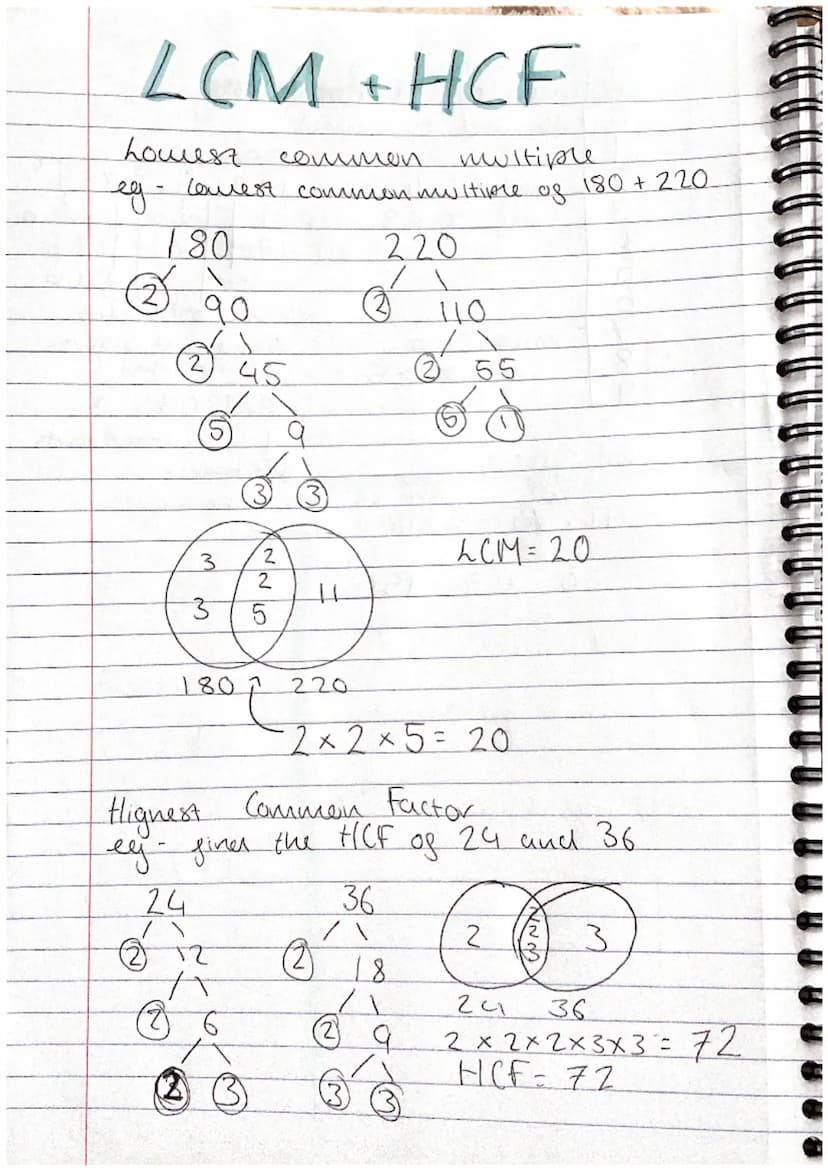 LCM + HCF
Lowest common multiple
eg - lowest common multiple of 180 + 220
180 220
2 90 2 110
2 45 2 55
5 9 5 11
3 3
3 2 11
2
3 5
LCM = 20
180 220
2 × 2 × 5 = 20
Highest Common Factor
eg - find the HCF of 24 and 36
24 36
2 12 2 18
2 6 2 9
2 3 3 3
2 2 3
2
3
24 36
2 × 2 × 2 × 3 × 3 = 72
HCF = 72